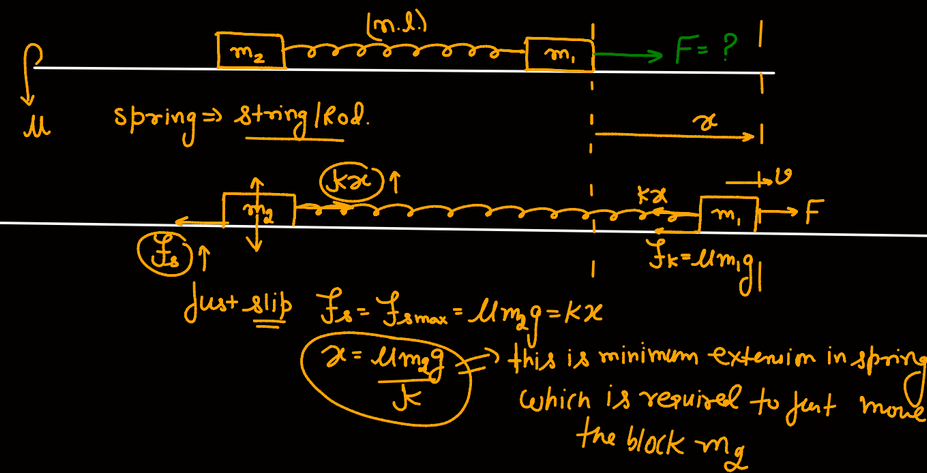 (n.l.)
m₂ m₁ F = ?
μ spring ⇒ string/Rod. x
kx ↑ kx v
m₂ m₁ F
fs ↑ fk = μm₁g
Just slip fs = fsmax = μm₂g = kx
x = μm₂g/k → this is minimum extension in spring
which is required to just move
the block m₂